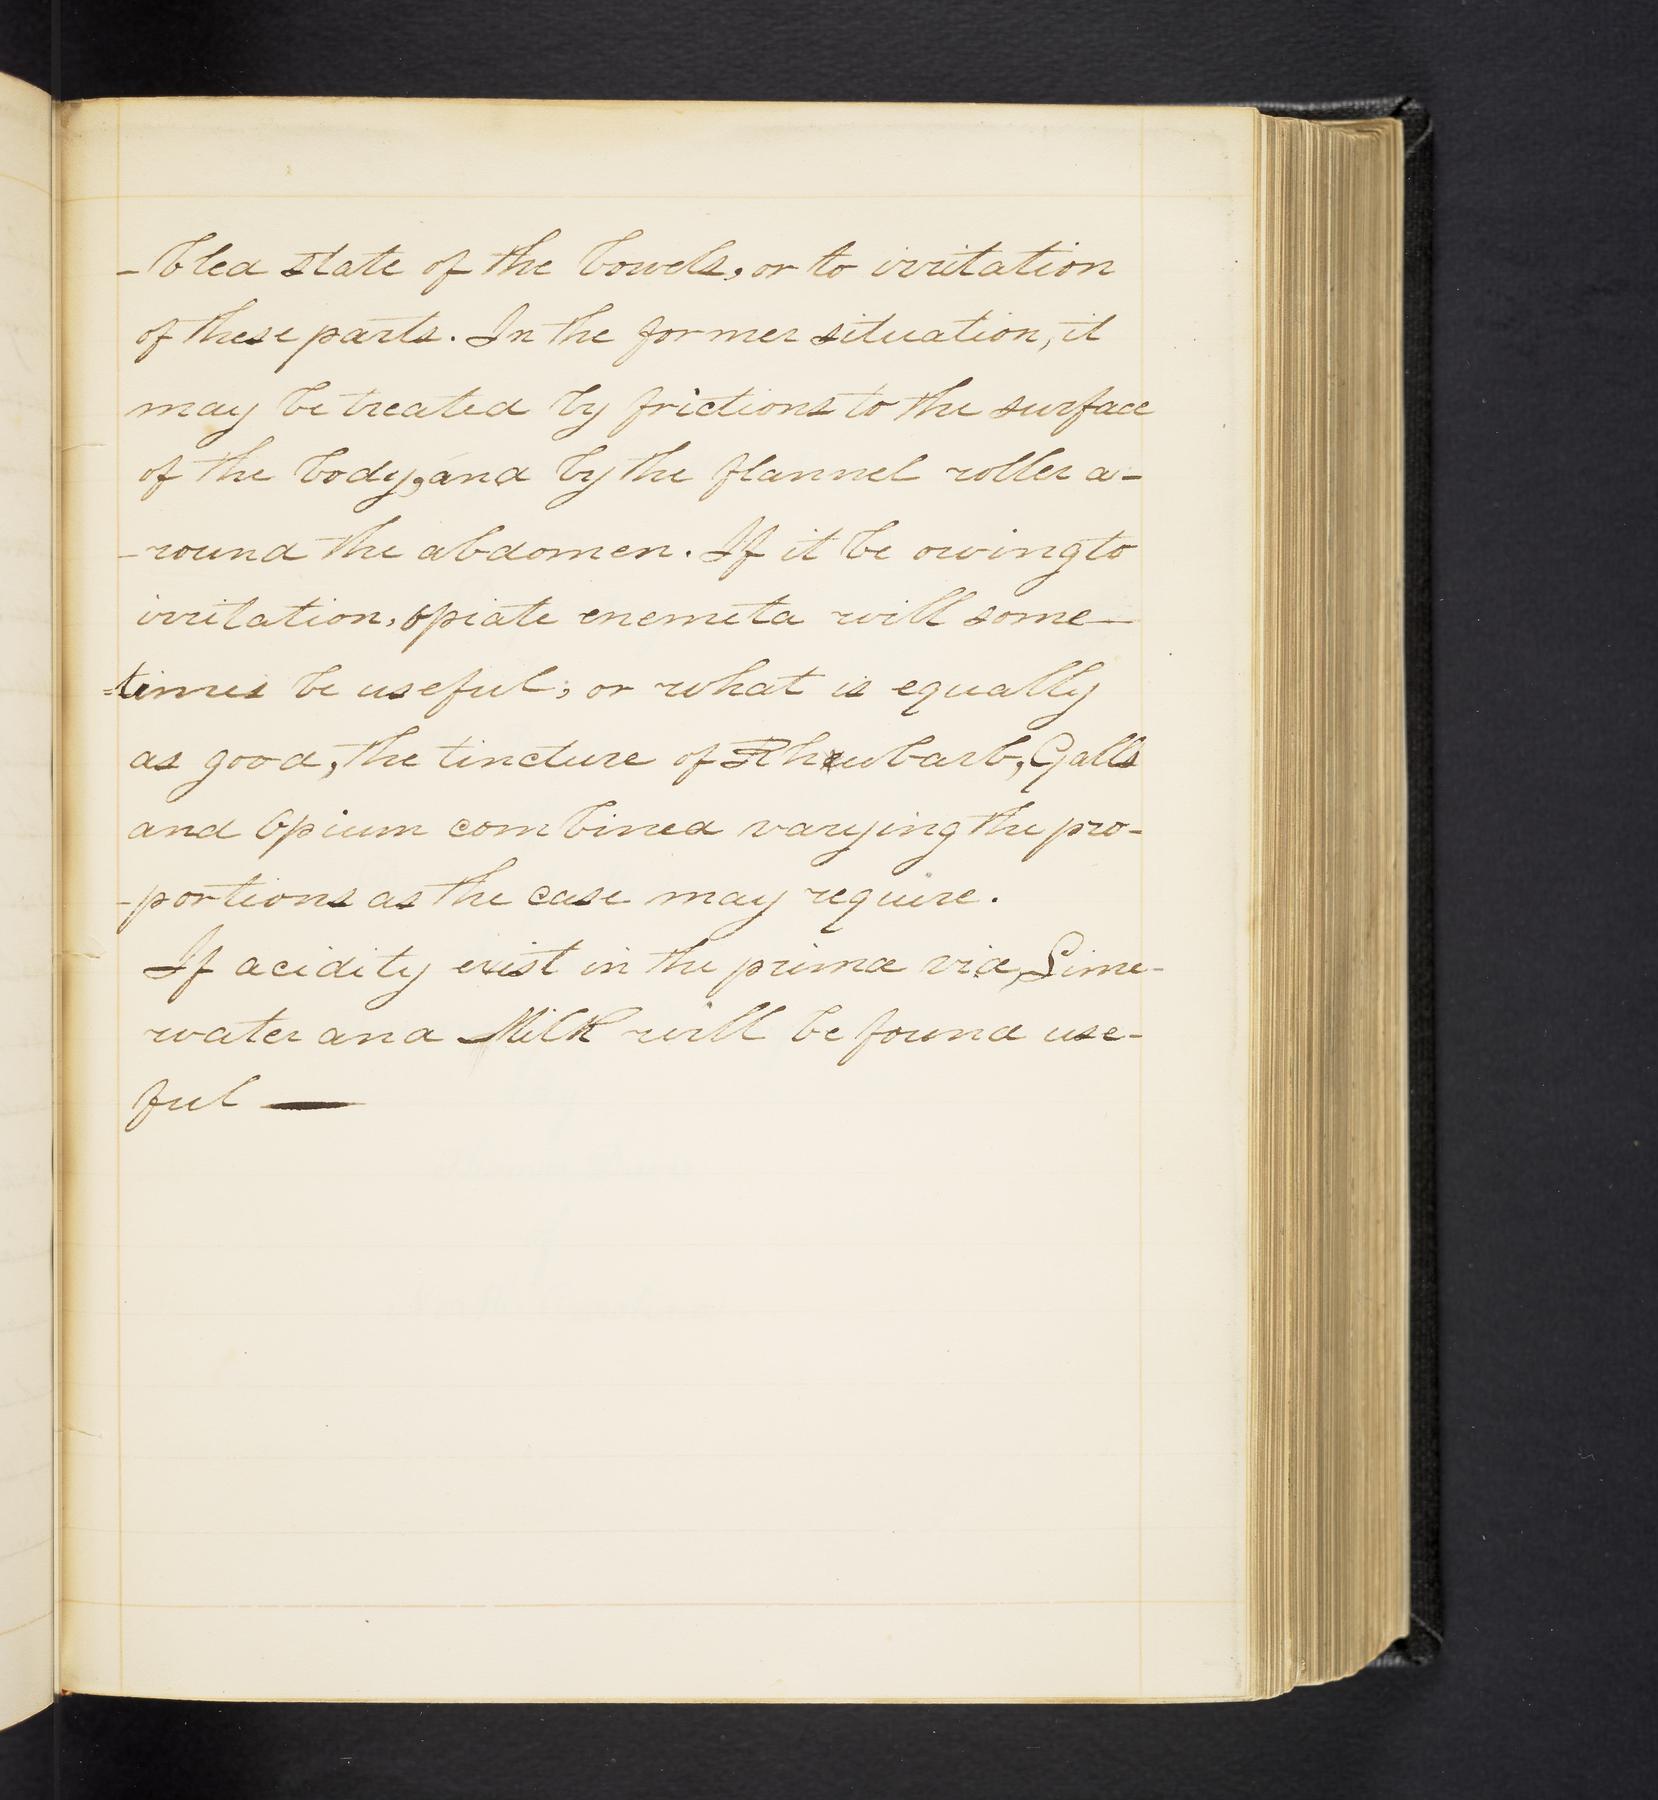 -bled state of the bowels, or to irritation
of these parts. In the former situation, it
may be treated by frictions to the surface
of the body, and by the flannel roller a-
-round the abdomen. If it be owing to
irritation, opiate enemeta will some-
=times be useful; or what is equally
as good, the tincture of Rhubarb, Galls
and Opium combined varying the pro-
-portions as the case may require.
If acidity exist in the prima via, Lime-
water and Milk will be found use-
ful —